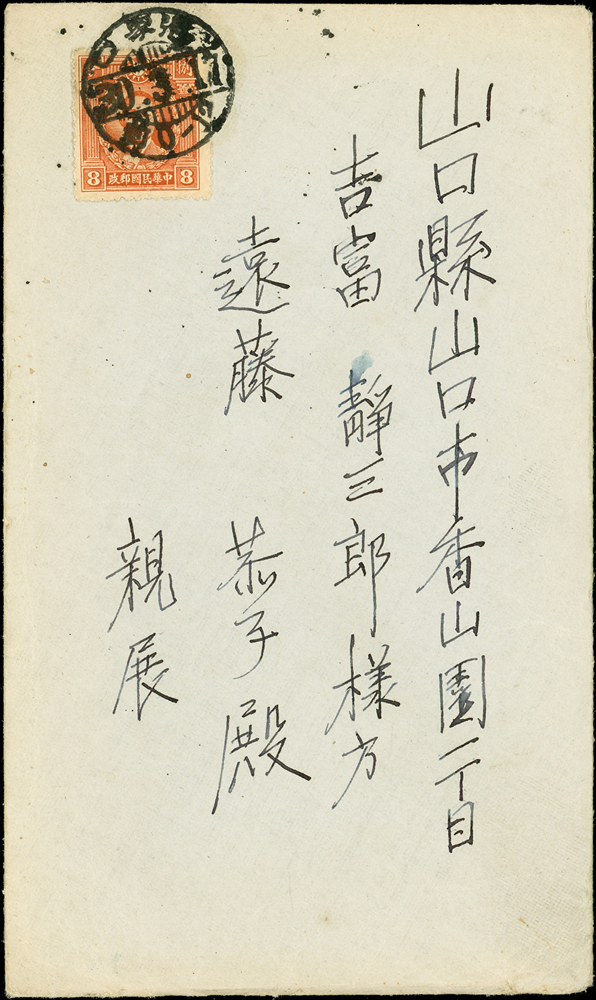 山口縣山口市香山園一丁目
吉富 靜三郎樣方
遠藤 恭子殿
親展
捌
8 政郵國民華中 8